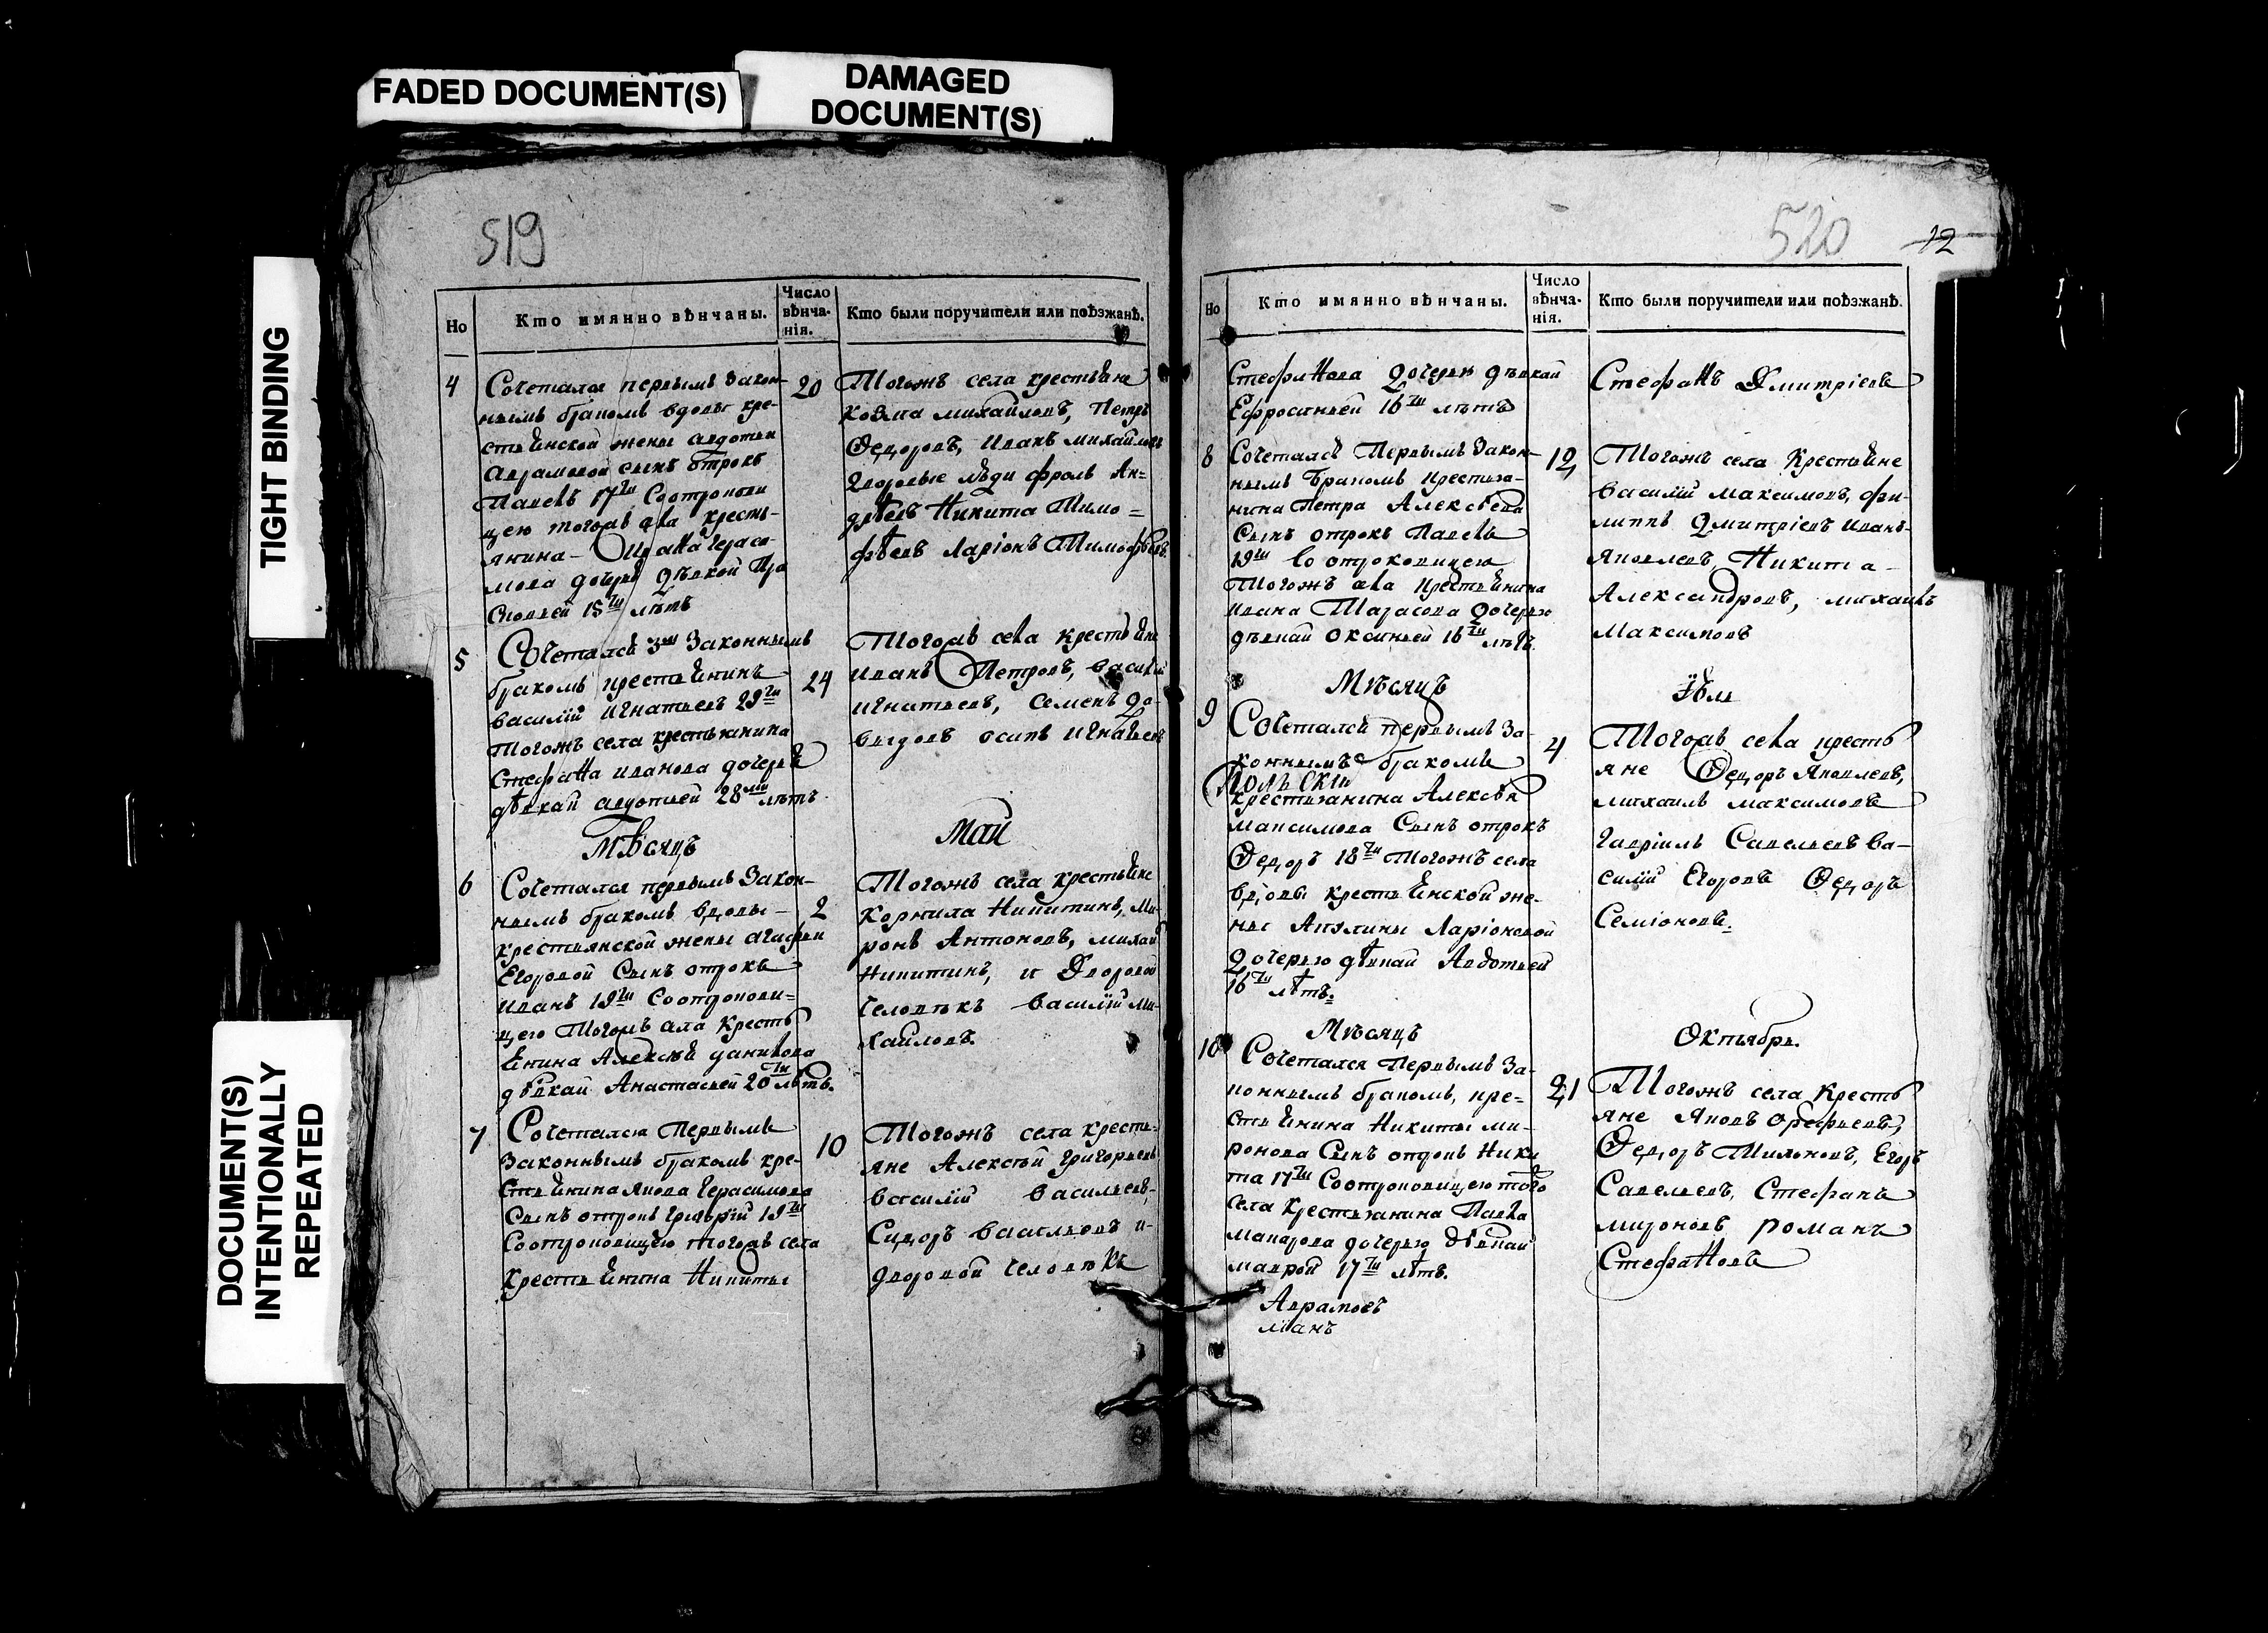 FADED DOCUMENT(S)
DAMAGED
DOCUMENT(S)
TIGHT BINDING
DOCUMENT(S)
INTENTIONALLY
REPEATED
519
Но
Кто имянно вѣнчаны.
Число
вѣнча-
нія.
Кто были поручители или поѣзжанѣ.
4
Сочетался первымъ закон-
нымъ бракомъ вдовы кре-
стьянской жены авдотьи
аврамовой сынъ отрокъ
Павелъ 17ти Соотрокови
цею тогожъ села кресть-
янина Ивана Гераси-
мова дочерью Дѣвкой Пра
сковьей 15ти лѣтъ
20
Тогожъ села крестьяне
козма михайловъ, Петръ
Ѳедоровъ, иванъ михайловъ
Дворовые люди фролъ Ан=
дрѣевъ Никита Тимо=
фѣевъ Ларіонъ Тимофѣевъ.
5
Сочетался 3мъ Законнымъ
бракомъ крестьянинъ
василій игнатьевъ 29ти
тогожъ села крестьянина
Стефана иванова дочерью
дѣвкай авдотьей 28ми лѣтъ
24
Тогожъ села крестьяне
иванъ Петровъ, василій
игнатьевъ, семенъ Да-
выдовъ осипъ игнатьевъ
Мѣсяцъ
Май
6
Сочетался первымъ Закон-
нымъ бракомъ вдовы-
крестьянской жены агафьи
Егоровой Сынъ отрокъ
иванъ 19ти Соотрокови=
цею Тогожъ села Кресть
янина Алексѣя данилова
дѣвкай Анастасьей 20ти лѣтъ.
2
Тогожъ села крестьяне
Корнила Никитинъ, Ми-
ронъ Антоновъ, михай
Никитинъ, и Дворовой
Человѣкъ василій ми-
хайловъ.
7
Сочетался Первымъ
Законнымъ бракомъ кре-
стьянина якова Герасимова
Сынъ отрокъ григорій 19ти
Соотроковицею тогожъ села
крестьянина Никиты
10
Тогожъ села кресть-
яне Алексѣй григорьевъ
василій васильевъ,
Сидоръ васильевъ и-
дворовой человѣкъ
520
12
Но
Кто имянно вѣнчаны.
Число
вѣнча-
нія.
Кто были поручители или поѣзжанѣ.
Стефанова Дочерью дѣвкай
Ефросиньей 16ти лѣтъ
Стефанъ Дмитріевъ
8
Сочетался Первымъ Закон-
нымъ Бракомъ крестья-
нина Петра Алексѣева
Сынъ отрокъ Павелъ
19ти со отроковицею
тогожъ села крестьянина
ивана Тарасова Дочерью
дѣвкай оксиньей 16ти лѣтъ.
12
Тогожъ села Крестьяне
василій максимовъ, фи-
липпъ Дмитріевъ иванъ-
яковлевъ, Никита-
Александровъ, михаилъ
максимовъ
Мѣсяцъ
Іюль
9
Сочетался первымъ за-
коннымъ бракомъ
крестьянина Алексѣя
максимова Сынъ отрокъ
Ѳедоръ 18ти Тогожъ села
вдовы крестьянской же-
ны Акулины Ларіоновой
Дочерью дѣвкай Авдотьей
16ти лѣтъ.
4
Тогожъ села кресть
яне Ѳедоръ Яковлевъ,
михаилъ максимовъ
Гавріилъ Савельевъ ва-
силій Егоровъ Ѳедоръ
Семіоновъ.
Мѣсяцъ
Октябрь.
10
Сочетался Первымъ за-
коннымъ бракомъ, кре=
стьянина Никиты ми-
ронова Сынъ отрокъ Ники
та 17ти Соотроковицею того
села крестьянина Павла
макарова дочерью Дѣвкай
маврой 17ти лѣтъ.
21
Тогожъ села Кресть
яне Яковъ Орефьевъ,
Ѳедоръ Тихоновъ, Егоръ
Савельевъ, Стефанъ
мироновъ романъ
Стефановъ